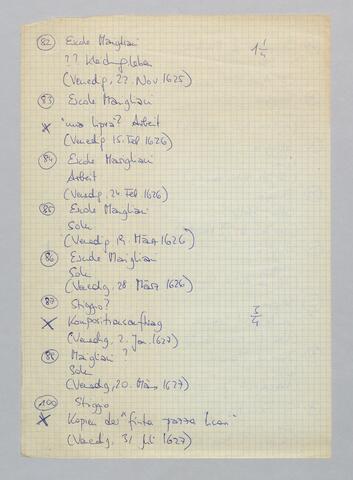 82 Ercole Marigliani 1 1/4
??
(Venedig, 22. Nov 1625)
83 Ercole Marigliani
x "una Arbeit
(Venedig 15. Feb 1626)
84 Ercole Marigliani
Arbeit
(Venedig, 24. Feb 1626)
85 Ercole Marigliani
Sohn
(Venedig 19. März 1626)
86 Ercole Marigliani
Sohn
(Venedig, 28 März 1626)
87 Striggio?
x Kompositionsauftrag 3/4
(Venedig, 2. Jan. 1627)
88 Marigliani ?
Sohn
(Venedig, 20. März 1627)
100 Striggio
x Kopien der "finta pazza Licori"
(Venedig, 31 Juli 1627)